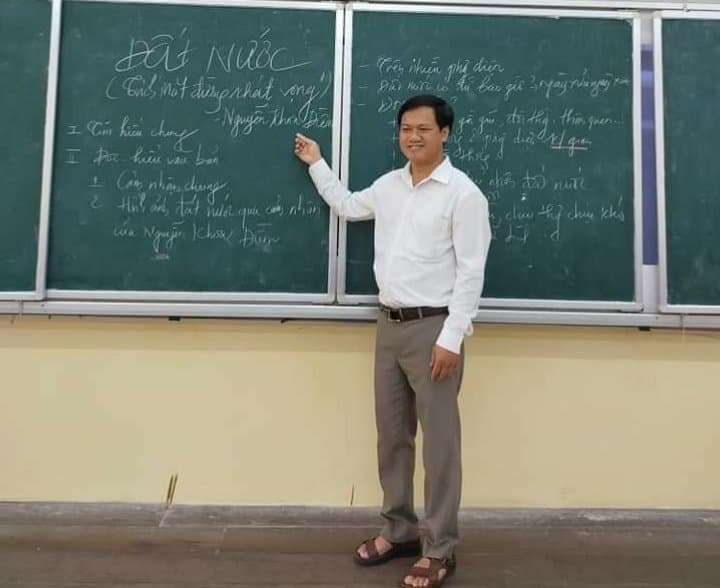 ĐẤT NƯỚC
(Trích Mặt đường khát vọng)
- Nguyễn Khoa Điềm
I Tìm hiểu chung
II Đọc - hiểu văn bản
1 Cảm nhận chung
2 Hình ảnh đất nước qua cảm nhận
của Nguyễn Khoa Điềm
- Trên nhiều phg diện
- Đất nước có từ bao giờ? ngày xửa ngày xưa
gũi, đời thg, thân quen...
ở phg diện k/gian
đất nước